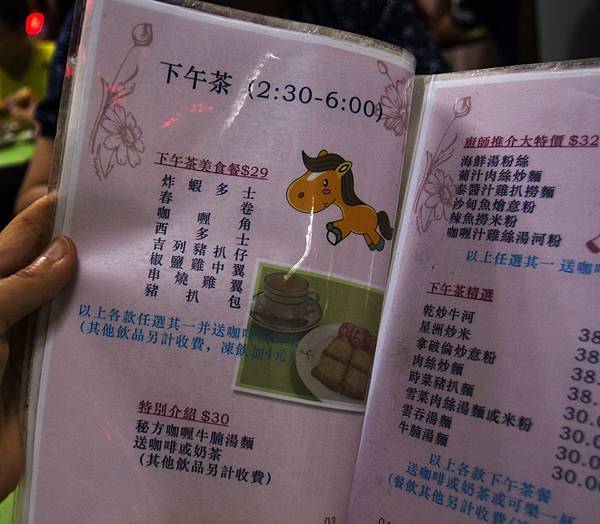 下午茶 (2:30-6:00)
下午茶美食餐$29
炸 蝦 多 士
春 卷
咖 喱 角
西 多 士
吉 列 豬 扒 仔
椒 鹽 雞 中 翼
串 燒 雞 翼
豬 扒 包
以上各款任選其一并送咖啡
(其他飲品另計收費，凍飲加4元)
特別介紹 $30
秘方咖喱牛腩湯麵
送咖啡或奶茶
(其他飲品另計收費)
03
廚師推介大特價 $32
海鮮湯粉絲
葡汁肉絲炒麵
泰醬汁雞扒撈麵
沙甸魚燴意粉
辣魚撈米粉
咖喱汁雞絲湯河粉
以上任選其一 送咖
下午茶精選
乾炒牛河 38
星洲炒米 38.
拿破倫炒意粉 38.
肉絲炒麵 38.
時菜豬扒麵 30.0
雪菜肉絲湯麵或米粉 30.0
雲吞湯麵 30.0
牛腩湯麵 30.00
以上各款下午茶餐
送咖啡或奶茶或可樂一杯
(餐飲其他另計收費
04